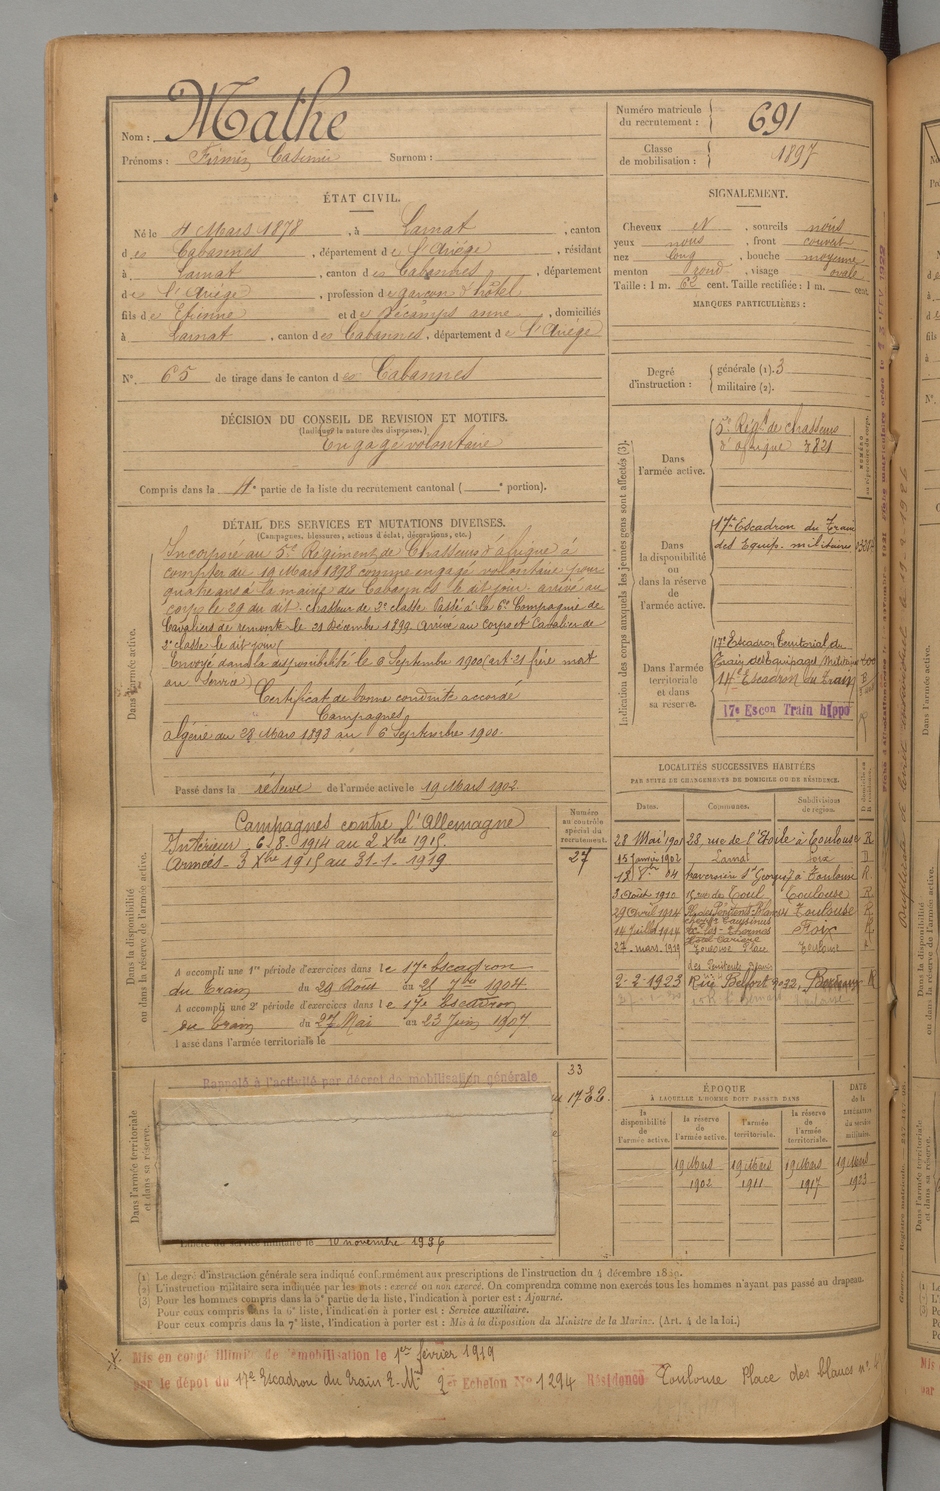 Nom : Mathe
Prénoms : Firmin Casimir Surnom :
Numéro matricule du recrutement : 691
Classe de mobilisation : 1897
ÉTAT CIVIL.
Né le 4 Mars 1878, à Larnat, canton
des Cabannes, département de l'Ariège, résidant
à Larnat, canton des Cabannes, département
de l'Ariège, profession de garçon d'hôtel
fils de Etienne et de Décamps anne, domiciliés
à Larnat, canton des Cabannes, département de l'Ariège
N° 65 de tirage dans le canton des Cabannes
SIGNALEMENT.
Cheveux N, sourcils noirs
yeux noirs, front couvert
nez long, bouche moyenne
menton rond, visage ovale
Taille : 1 m. 62 cent. Taille rectifiée : 1 m. cent.
MARQUES PARTICULIÈRES :
Degré d'instruction : générale (1). 3
militaire (2).
DÉCISION DU CONSEIL DE REVISION ET MOTIFS.
(Indiquer la nature des dispenses.)
Engagé volontaire
Compris dans la 4e partie de la liste du recrutement cantonal ( e portion).
DÉTAIL DES SERVICES ET MUTATIONS DIVERSES.
(Campagnes, blessures, actions d'éclat, décorations, etc.)
Dans l'armée active.
Incorporé au 5e Régiment de Chasseurs d'afrique à
compter du 19 Mars 1898 comme engagé volontaire pour
quatre ans à la mairie des Cabannes le dit jour. arrivé au
corps le 29 du dit. chasseur de 2e classe. Passé à la 6e Compagnie de
Cavaliers de remonte le 21 Décembre 1899. Arrivé au corps et Cavalier de
2e classe le dit jour
Envoyé dans la disponibilité le Septembre 1900 (art. 21 frère mort
au service)
Certificat de bonne conduite accordé
Campagnes
algérie du 28 Mars 1898 au 6 Septembre 1900.
Passé dans la réserve de l'armée active le 19 Mars 1902.
Indication des corps auxquels les jeunes gens sont affectés (3).
Dans l'armée active.
5e Régt de chasseurs
d'afrique 3821
Dans la disponibilité ou dans la réserve de l'armée active.
17e Escadron du Train
des Equip. militaires
Dans l'armée territoriale et dans sa réserve.
17e Escadron Territorial du
Train des Equipages Militaires
14e Escadron du Train
17e Escon Train hippo
LOCALITÉS SUCCESSIVES HABITÉES
PAR SUITE DE CHANGEMENTS DE DOMICILE OU DE RÉSIDENCE.
Dates. Communes. Subdivisions de région.
28 Mai 1901 28, rue de l'Etoile à Toulouse R
15 Janvier 1902 Larnat Foix D
04 à Toulouse R
3 Août 1910 Toulouse R
29 Avril 1914 Toulouse R
14 Juillet 1914 Foix
27. mars. 1919 Toulouse Place Toulouse
2-2-1923 Rue Belfort Bordeaux R
Dans la disponibilité ou dans la réserve de l'armée active.
Numéro au contrôle spécial du recrutement.
27
Campagnes contre l'Allemagne
Intérieur 6-8-1914 au 2 Xbre 1915.
Armées 3 Xbre 1915 au 31-1-1919
A accompli une 1re période d'exercices dans le 17e Escadron
du Train du 29 Août au 25 7bre 1904
A accompli une 2e période d'exercices dans le 17e Escadron
du Train du 27 Mai au 23 Juin 1907
Passé dans l'armée territoriale le
Dans l'armée territoriale et dans sa réserve.
33
Rappelé à l'activité par décret de mobilisation générale
Libéré du service militaire le 10 novembre 1936
ÉPOQUE
À LAQUELLE L'HOMME DOIT PASSER DANS
la disponibilité de l'armée active. la réserve de l'armée active. l'armée territoriale. la réserve de l'armée territoriale. DATE de la LIBÉRATION du service militaire.
19 Mars 19 Mars 19 Mars 19 Mars
1902 1911 1917 1923
(1) Le degré d'instruction générale sera indiqué conformément aux prescriptions de l'instruction du 4 décembre 1889.
(2) L'instruction militaire sera indiquée par les mots : exercé ou non exercé. On comprendra comme non exercés tous les hommes n'ayant pas passé au drapeau.
(3) Pour les hommes compris dans la 5e partie de la liste, l'indication à porter est : Ajourné.
Pour ceux compris dans la 6e liste, l'indication à porter est : Service auxiliaire.
Pour ceux compris dans la 7e liste, l'indication à porter est : Mis à la disposition du Ministre de la Marine. (Art. 4 de la loi.)
Mis en congé illimité de démobilisation le 1er février 1919
par le dépôt du 17e Escadron du Train E.M. 2er Echelon N° 1294 Résidence Toulouse Place des blancs n° 4